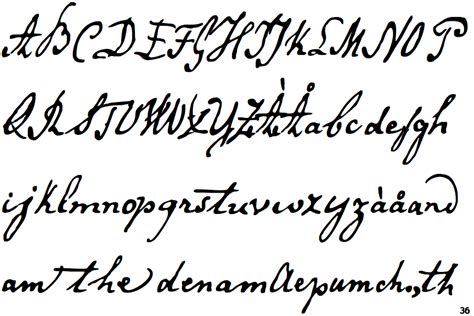 ABCDEFGHIJKLMNOP
QRSTUVWXYZÀÅabcdefgh
ijklmnopqrstuvwxyzàåand
am the denamaepumch.,th
36